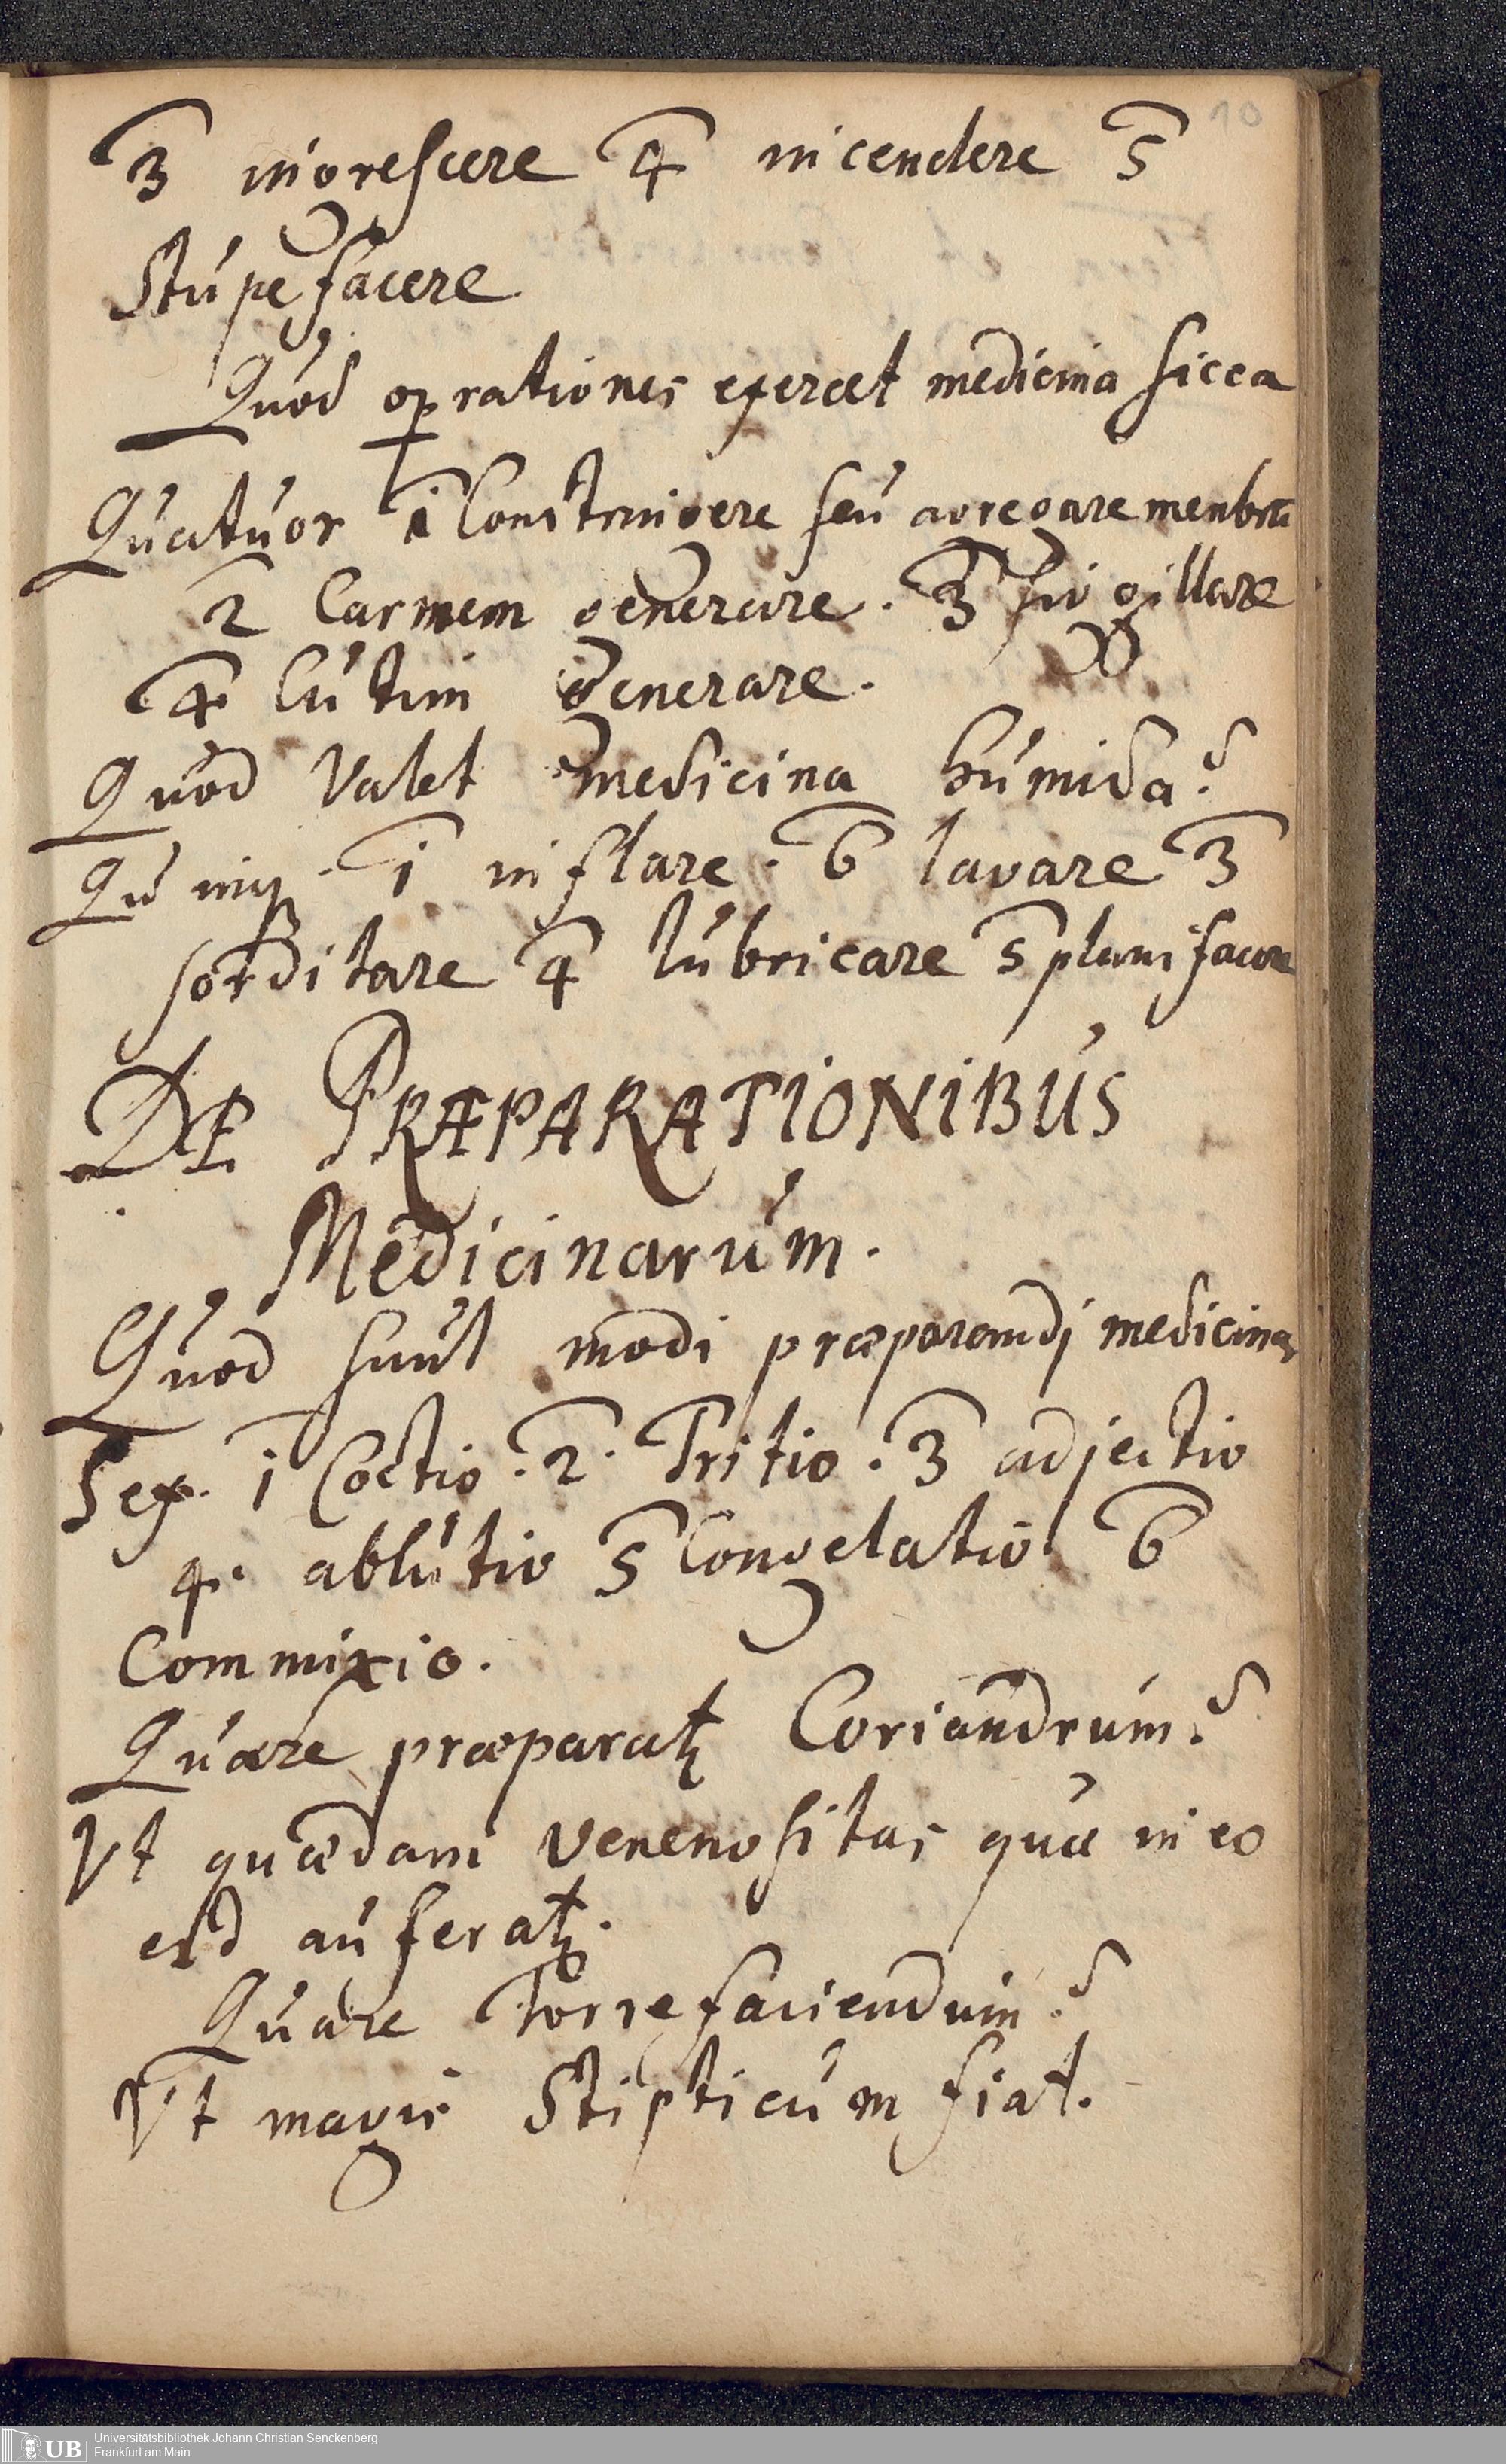 10
3 ingrescere 4 incendere 5
Stupefacere
Quod oprationes exercet medicina sicca
Quatuor 1 Constringere seu agregare menbra
2 Carmem generare. 3 sigillare
4 Cutim Generare.
Quod Valet medicina humida?
Quinq3. 1 inflare. 6 lavare 3
sorditare 4 lubricare 5 planifacere
DE PRÆPARATIONIBUS
Medicinarum.
Quod sunt modi præparandi medicinas
Sex. 1 Coctio. 2. Tritio. 3 adjectio
4. ablutio 5 Congelatio 6
Commixio.
Quare præparatꝫ Coriandrum?
Vt quædam venenositas quæ in eo
est auferatꝫ.
Quare Torrefaciendum?
Vt magis Stipticum fiat.
UB Universitätsbibliothek Johann Christian Senckenberg
Frankfurt am Main